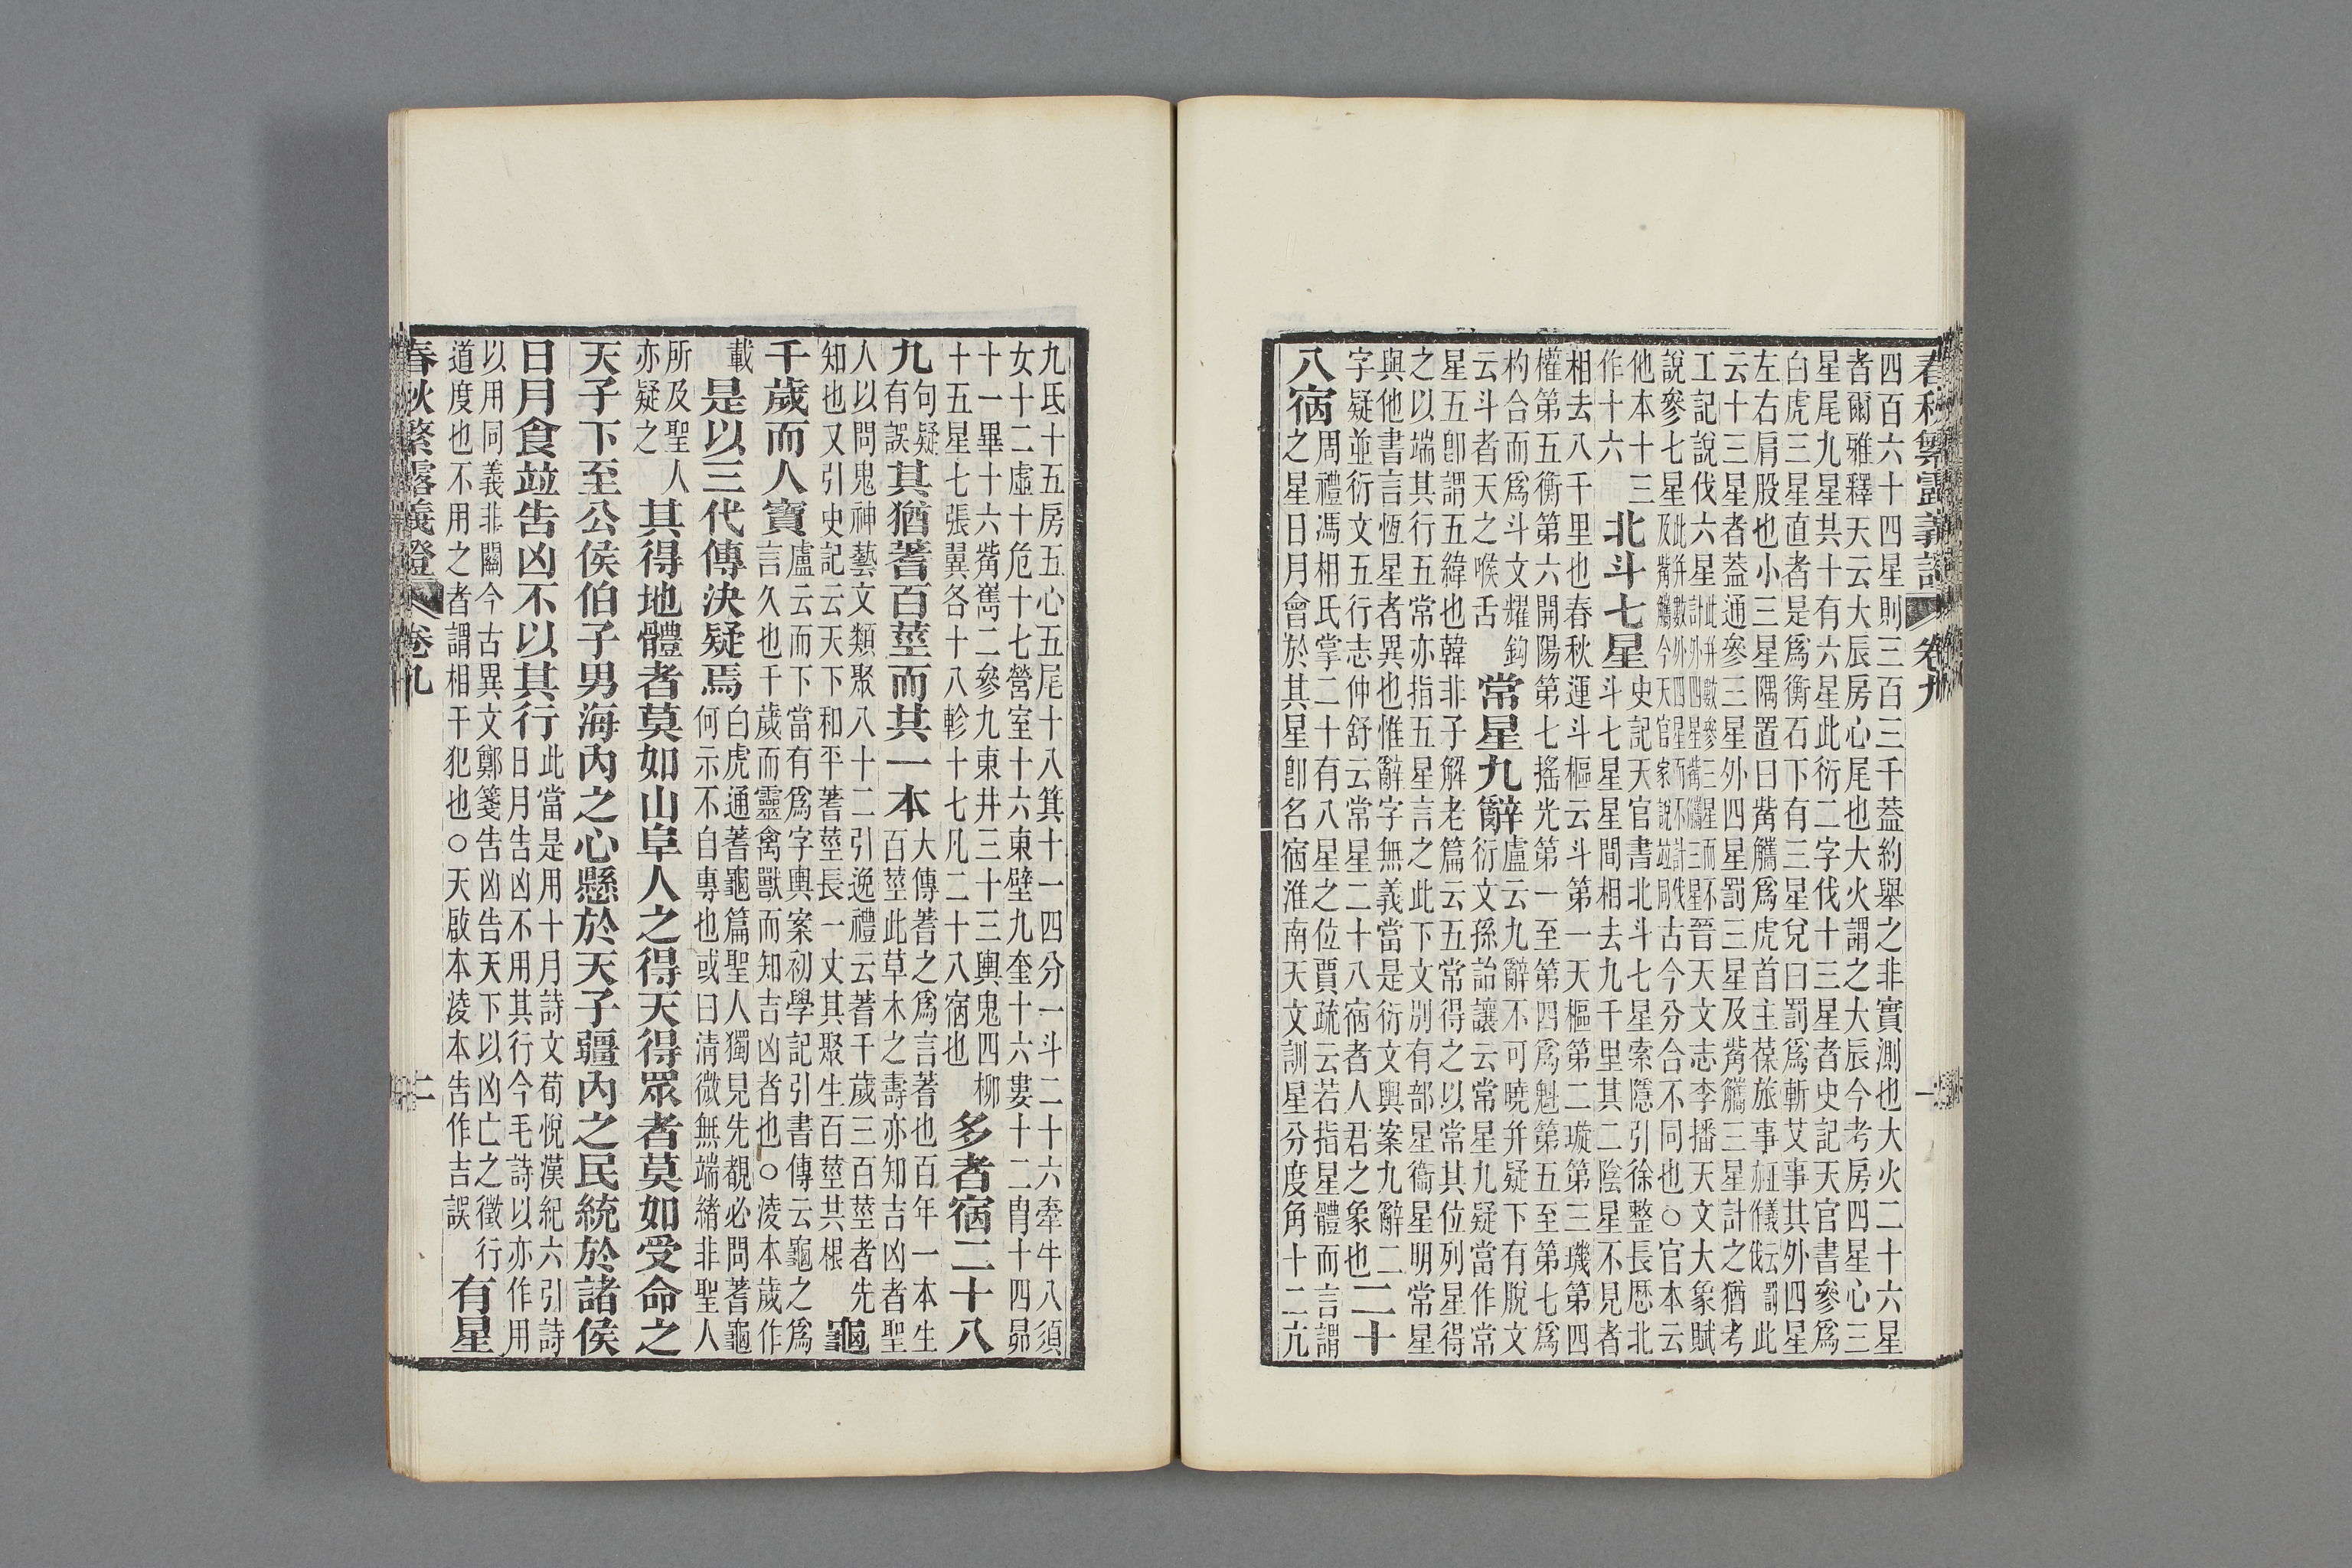 春秋繁露義證 卷九 一
四百六十四星則三百三千蓋約舉之非實測也大火二十六星
者爾雅釋天云大辰房心尾也大火謂之大辰今考房四星心三
星尾九星共十有六星此衍二字伐十三星者史記天官書參爲
白虎三星直者是爲衡石下有三星兌曰罰爲斬艾事其外四星
左右肩股也小三星隅置曰觜觿爲虎首主葆旅事正義云罰亦作伐此
云十三星者蓋通參三星外四星罰三星及觜觿三星計之猶考
工記說伐六星此并數參三星而不計外四星觜觿三星晉天文志李播天文大象賦
說參七星此并數外四星而不計伐及觜觿今天官家說竝同古今分合不同也○官本云
他本十三
作十六
北斗七星
史記天官書北斗七星索隱引徐整長歷北
斗七星星間相去九千里其二陰星不見者
相去八千里也春秋運斗樞云斗第一天樞第二璇第三璣第四
權第五衡第六開陽第七搖光第一至第四爲魁第五至第七爲
杓合而爲斗文耀鈎
云斗者天之喉舌
常星九辭
盧云九辭不可曉幷疑下有脫文
衍文孫詒讓云常星九疑當作常
星五卽謂五緯也韓非子解老篇云五常得之以常其位列星得
之以端其行五常亦指五星言之此下文別有部星衞星明常星
與他書言恆星者異也惟辭字無義當是衍文輿案九辭二
字疑並衍文五行志仲舒云常星二十八宿者人君之象也
二十
八宿
周禮馮相氏掌二十有八星之位賈疏云若指星體而言謂
之星日月會於其星卽名宿淮南天文訓星分度角十二亢
九氐十五房五心五尾十八箕十一四分一斗二十六牽牛八須
女十二虛十危十七營室十六東壁九奎十六婁十二胃十四昴
十一畢十六觜嶲二參九東井三十三輿鬼四柳
十五星七張翼各十八軫十七凡二十八宿也
多者宿二十八
九
句疑
有誤
其猶蓍百莖而共一本
大傳蓍之爲言蓍也百年一本生
百莖此草木之壽亦知吉凶者聖
人以問鬼神藝文類聚八十二引逸禮云蓍千歲三百莖者先
知也又引史記云天下和平蓍莖長一丈其聚生百莖共根
龜
千歲而人寶
盧云而下當有爲字輿案初學記引書傳云龜之爲
言久也千歲而靈禽獸而知吉凶者也○淩本歲作
載
是以三代傳決疑焉
白虎通蓍龜篇聖人獨見先覩必問蓍龜
何示不自專也或曰清微無端緒非聖人
所及聖人
亦疑之
其得地體者莫如山阜人之得天得眾者莫如受命之
天子下至公侯伯子男海內之心懸於天子疆內之民統於諸侯
日月食竝告凶不以其行
此當是用十月詩文荀悅漢紀六引詩
日月告凶不用其行今毛詩以亦作用
以用同義非關今古異文鄭箋告凶告天下以凶亡之徵行
道度也不用之者謂相干犯也○天啟本淩本告作吉誤
有星
春秋繁露義證 卷九 二